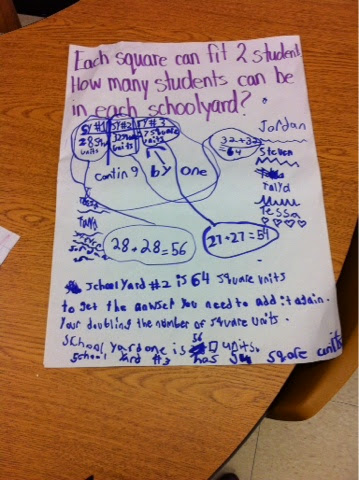 Each square can fit 2 student
How many students can be
in each schoolyard?
SY #1
28
units
SY #2
32
units
SY #3
27 square
units
32+32
=64
Jordan
by one
Talya
Tessa
28+28=56
27+27=54
Schoolyard #2 is 64 square units
to get the you need to add it again.
Your doubling the number of square units.
School yard one is 56 units.
School yard #3 has 54 sqare